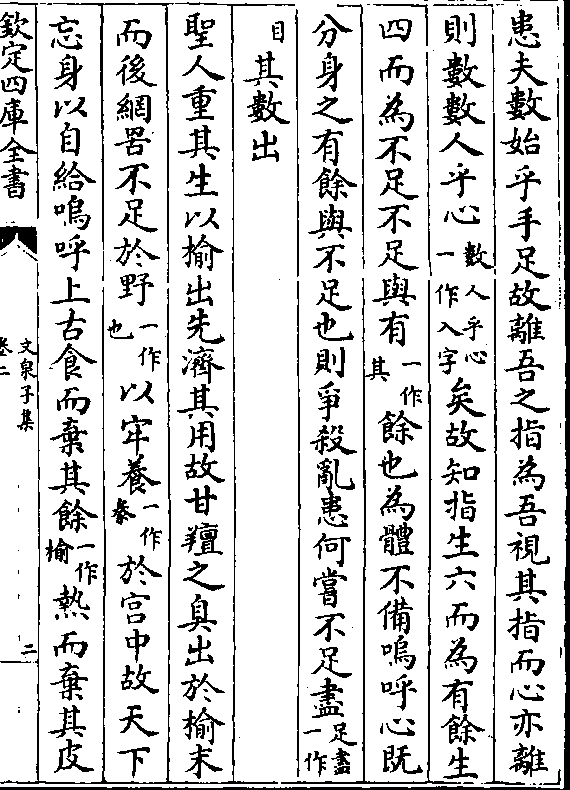 患夫數始乎手足故離吾之指為吾視其指而心亦離
則數數人乎心數人乎心一作入字矣故知指生六而為有餘生
四而為不足不足與有一作其餘也為體不備嗚呼心既
分身之有餘與不足也則爭殺亂患何嘗不足盡足盡一作
目其數出
聖人重其生以榆出先濟其用故甘羶之臭出於榆末
而後網罟不足於野一作也以牢養一作豢於宫中故天下
忘身以自給嗚呼上古食而棄其餘一作榆熱而棄其皮
欽定四庫全書
文泉子集
卷二
二